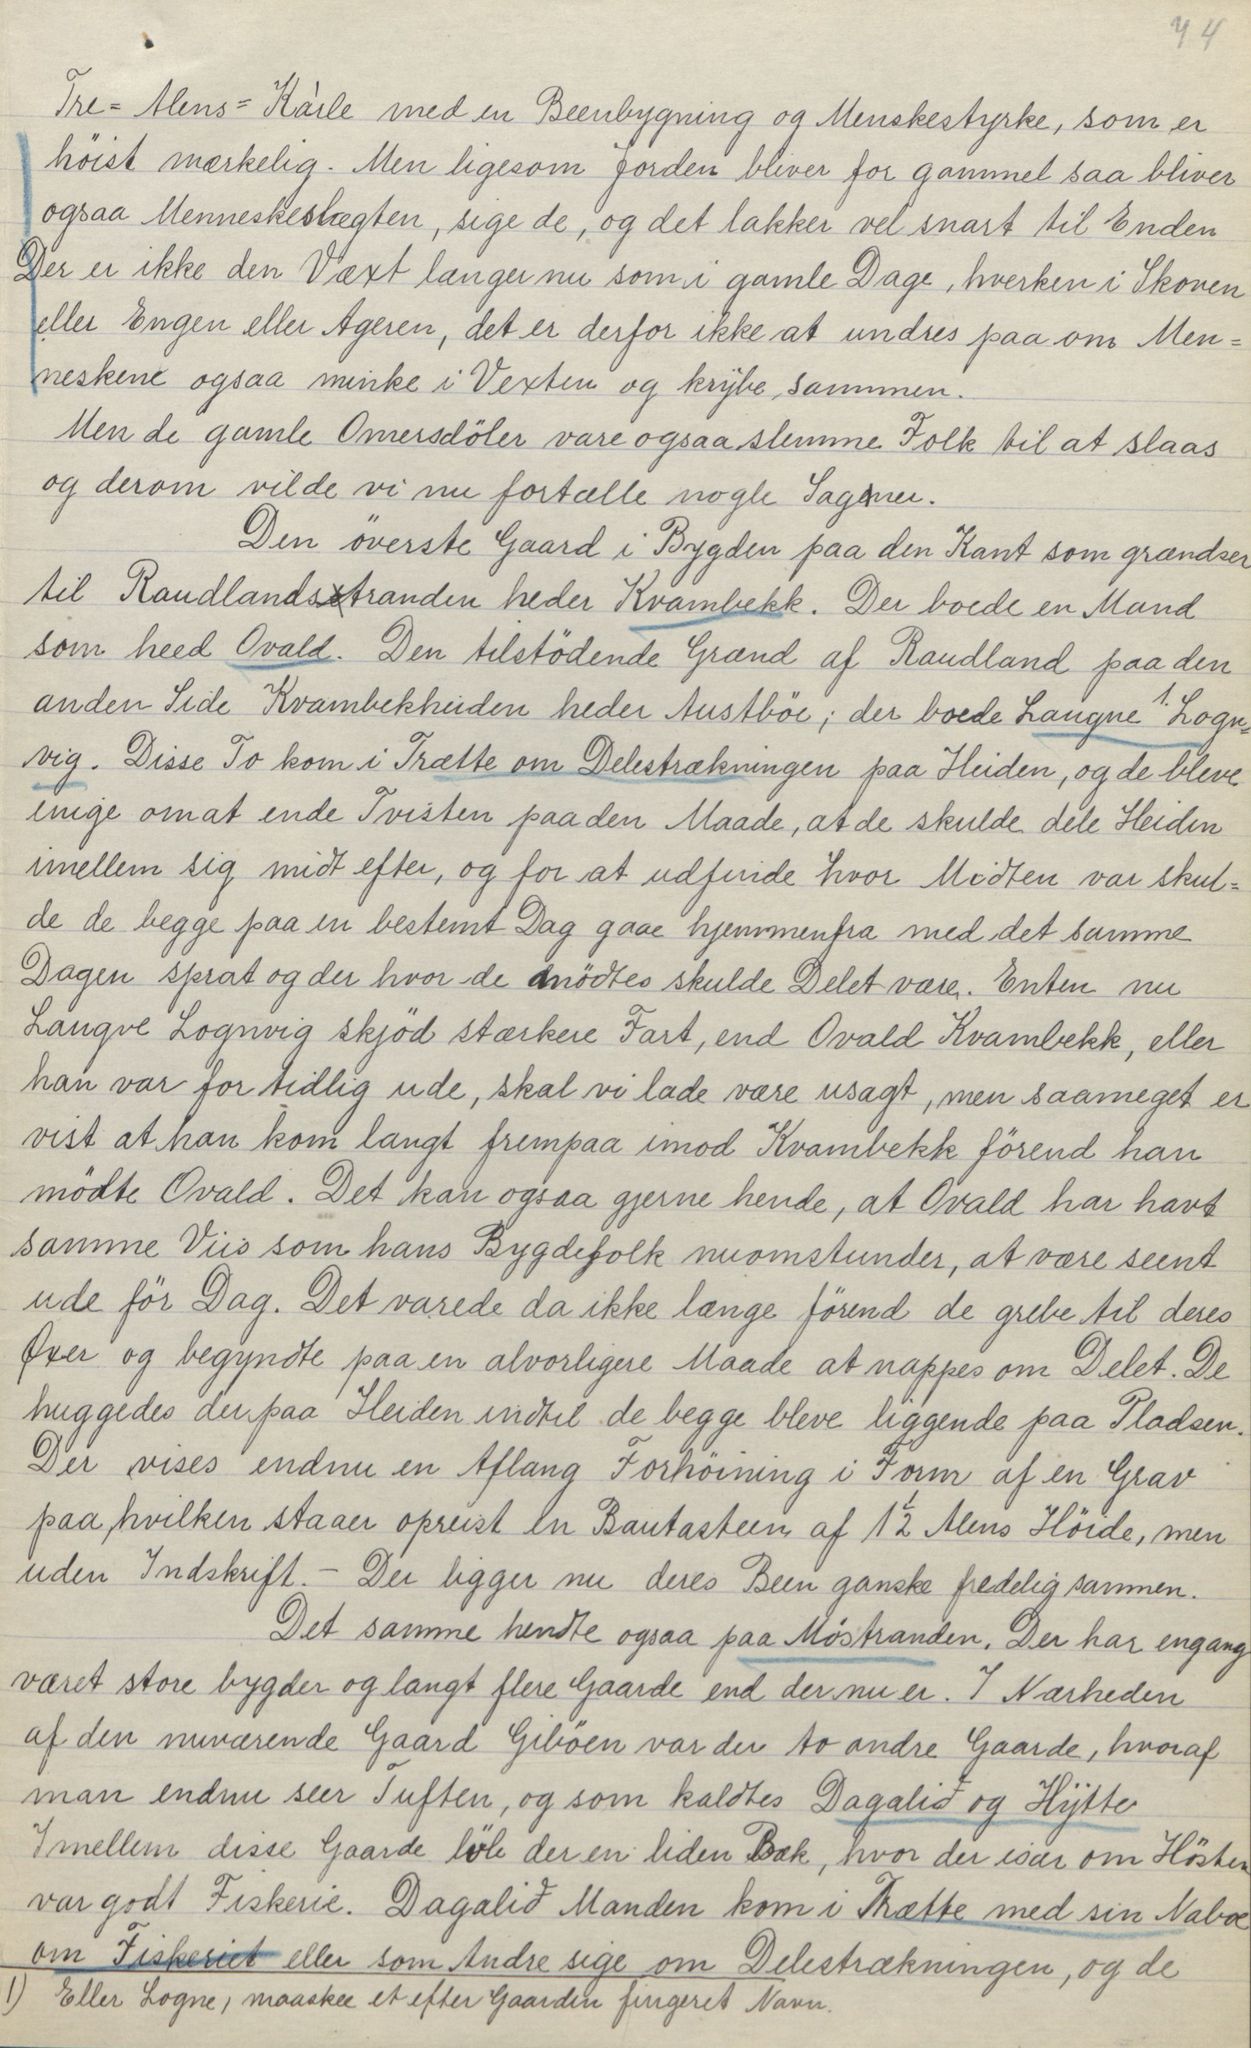 44
Tre= Alens= Kàrle med en Beenbygning og Menskestyrke, som er
höist mærkelig. Men ligesom Jorden bliver for gammel saa bliver
ogsaa Menneskeslægten, sige de, og det lakker vel snart til Enden
Der er ikke den Væxt længer nu som i gamle Dage, hverken i Skoven
eller Engen eller Ageren, det er derfor ikke at undres paa om Men=
neskene ogsaa minke i Vexten og krÿbe sammen.
Men de gamle Omersdöler vare ogsaa slemme Folk til at slaas
og derom vilde vi nu fortælle nogle Sagner.
Den överste Gaard i Bygden paa den Kant som grændser
til Raudlandsstranden heder Kvambekk. Der boede en Mand
som heed Ovald. Den tilstödende Grænd af Raudland paa den
anden Side Kvambekheiden heder Austböe; der boede Langne 1. Logn=
vig. Disse To kom i Trætte om Delestrækningen paa Heiden, og de bleve
enige om at ende Tvisten paa den Maade, at de skulde dele Heiden
imellem sig midt efter, og for at udfinde hvor Midten var skul=
de de begge paa en bestemt Dag gaae hjemmenfra med det samme
Dagen sprat og der hvor de mödtes skulde Delet være. Enten nu
Langve Lognvig skjöd stærkere Fart, end Ovald Kvambekk, eller
han var for tidlig ude, skal vi lade være usagt, men saameget er
vist at han kom langt frempaa imod Kvambekk förend han
mödte Ovald. Det kan ogsaa gjerne hende, at Ovald har havt
samme Viis som hans Bygdefolk nuomstunder, at være seent
ude för Dag. Det varede da ikke længe förend de grebe til deres
Øxer og begyndte paa en alvorligere Maade at nappes om Delet. De
huggedes der paa Heiden indtil de begge bleve liggende paa Pladsen.
Der vises endnu en Aflang Forhöining i Form af en Grav
paa hvilken staaer opreist en Bautasteen af 1½ Alens Höide, men
uden Indskrift. - Der ligger nu deres Been ganske fredelig sammen.
Det samme hendte ogsaa paa Möstranden. Der har engang
været store bygder og langt flere Gaarde end der nu er. I Nærheden
af den nuværende Gaard Giböen var der to andre Gaarde, hvoraf
man endnu seer Tuften, og som kaldtes Dagalid og Hÿtte
Imellem disse Gaarde löb der en liden Bæk, hvor der især om Hösten
var godt Fiskerie. Dagalid Manden kom i Trætte med sin Naboe
om Fiskeriet eller som Andre sige om Delestrækningen, og de
1) Eller Logne, maaskee et efter Gaarden fingeret Navn.